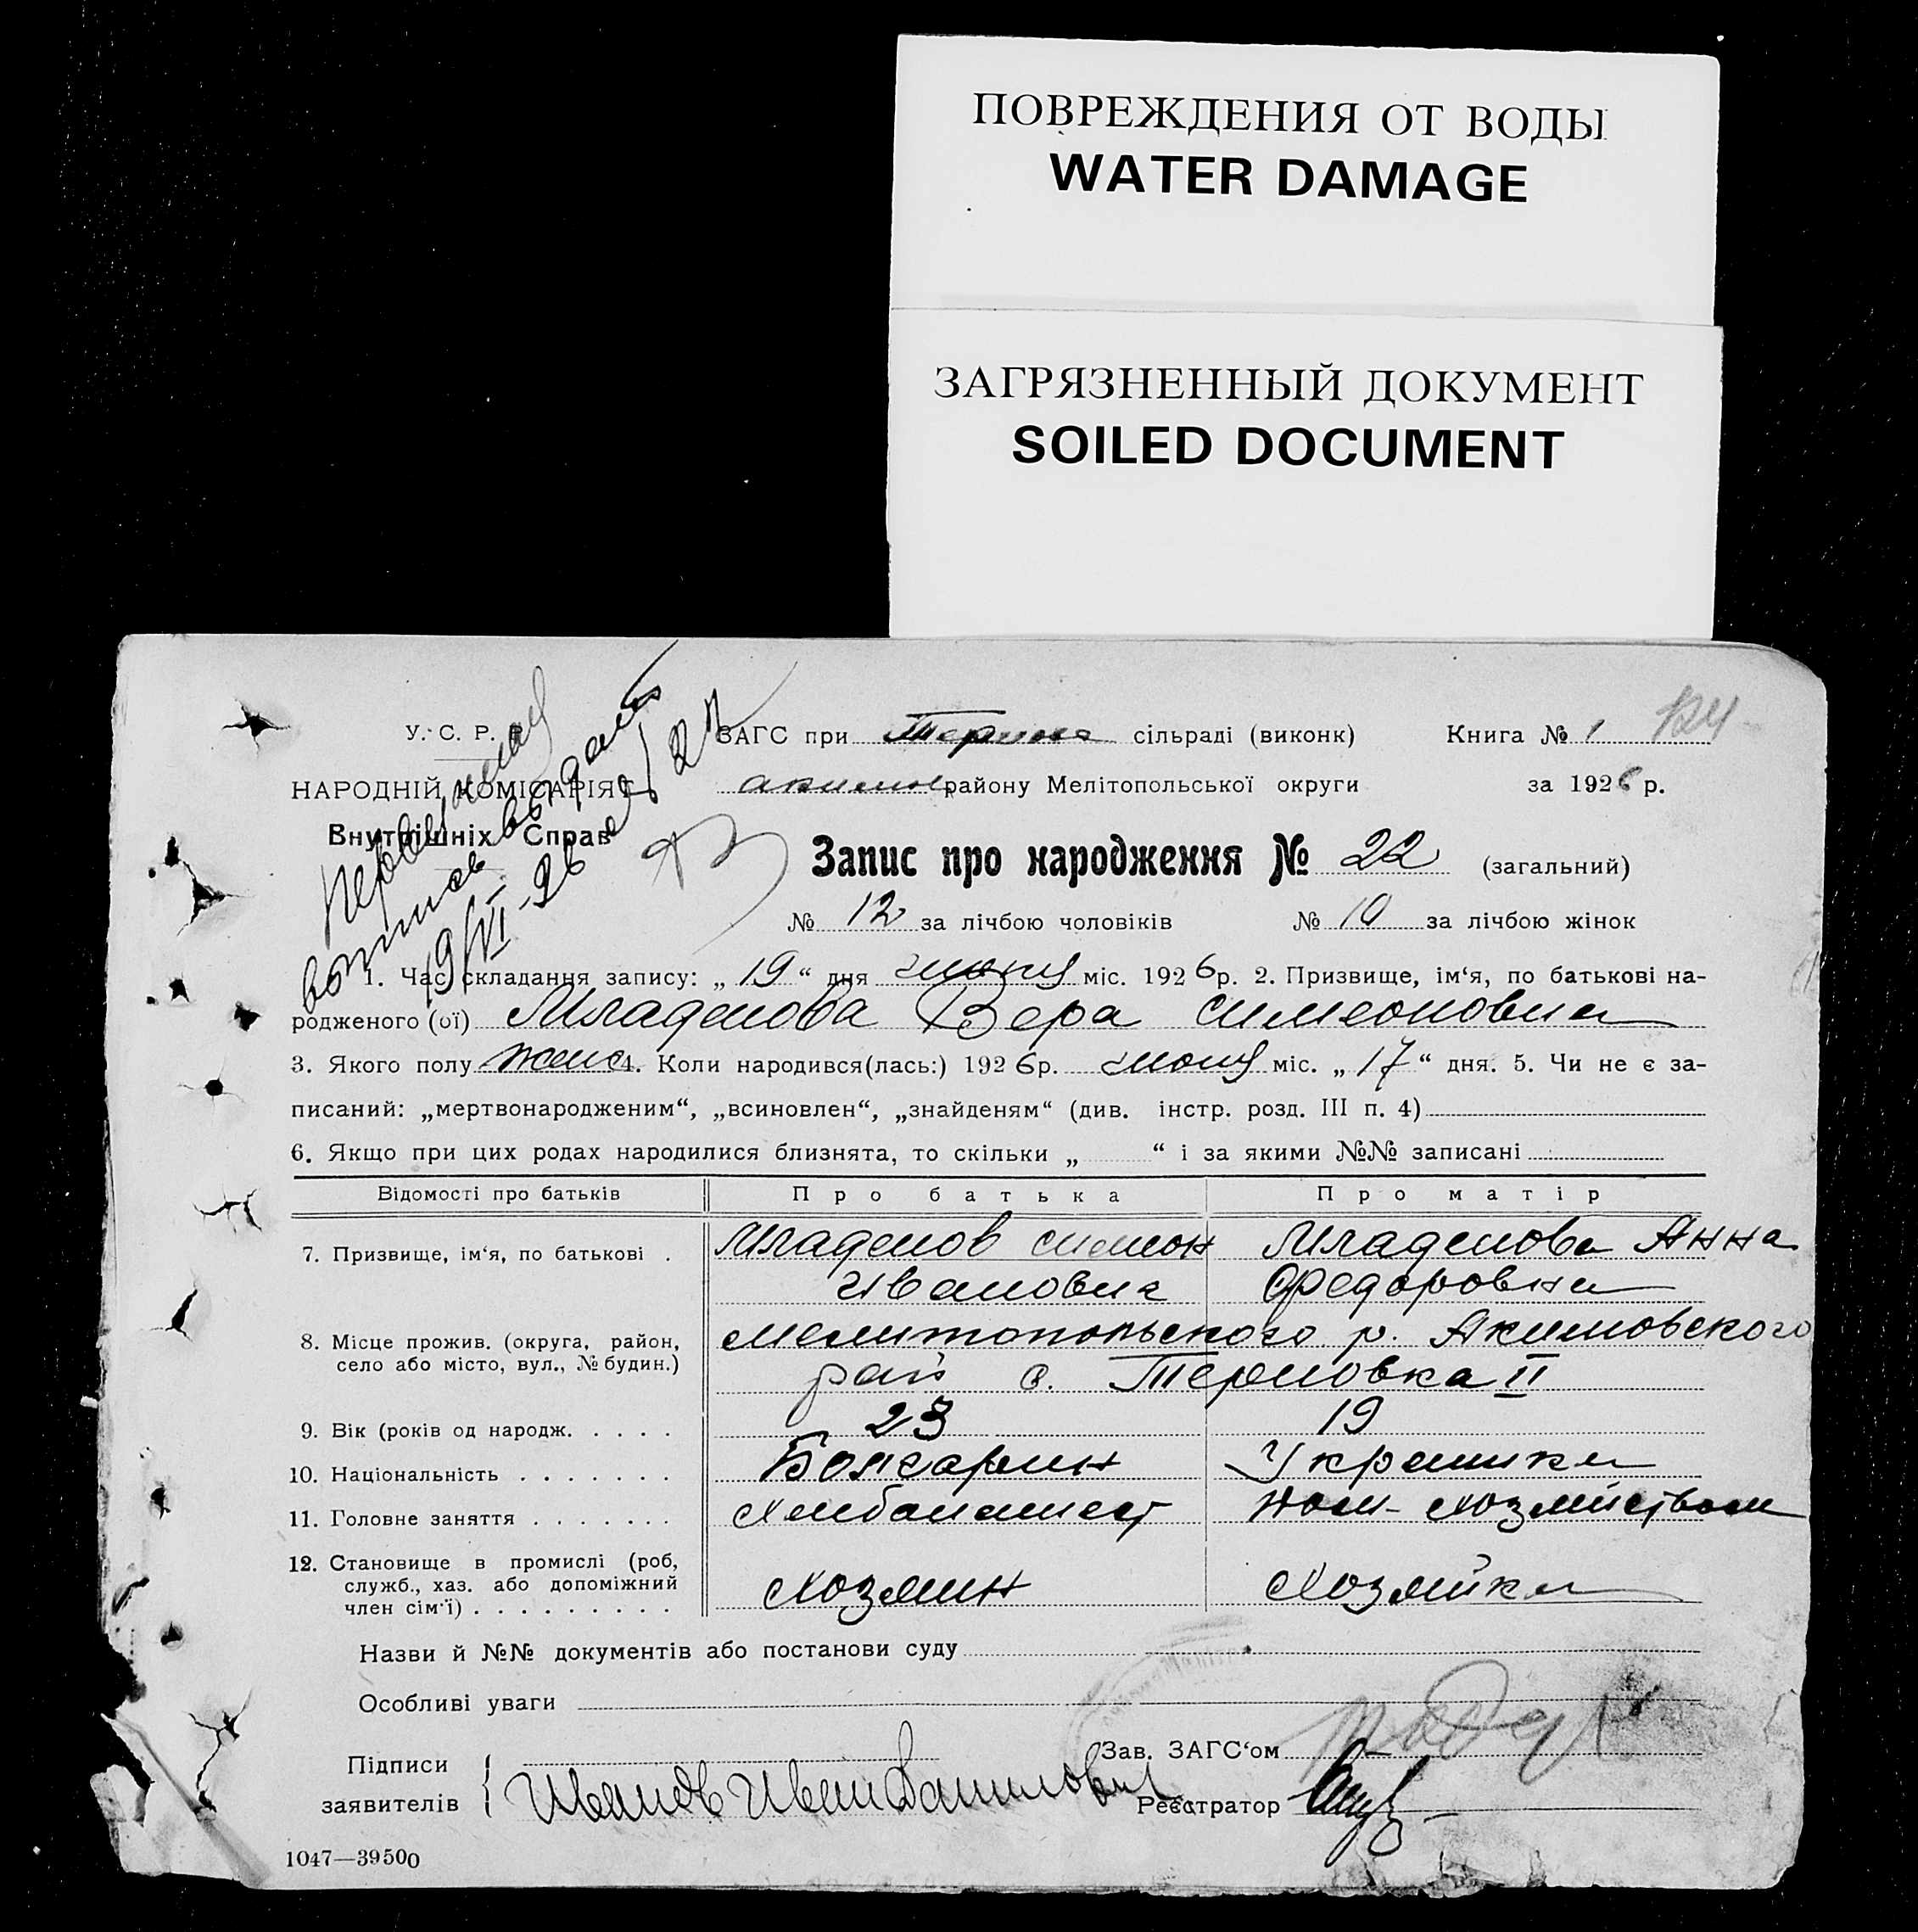 ПОВРЕЖДЕНИЯ ОТ ВОДЫ
WATER DAMAGE
ЗАГРЯЗНЕННЫЙ ДОКУМЕНТ
SOILED DOCUMENT
У. С. Р. Р.
ЗАГС при сільраді (виконк) Книга № 1
НАРОДНІЙ КОМІСАРІЯТ
Акимов району Мелітопольської округи за 1926 р.
Внутрішніх Справ
19/VI-26
Запис про народження № 22 (загальний)
№ 12 за лічбою чоловіків № 10 за лічбою жінок
1. Час складання запису: „ 19 “ дня июня міс. 1926 р. 2. Призвище, ім‘я, по батькові на-
родженого (ої) Младенова Вера Симеоновна
3. Якого полу женс 4. Коли народився(лась:) 1926 р. июня міс. „ 17 “ дня. 5. Чи не є за-
писаний: „мертвонародженим“, „всиновлен“, „знайденям“ (див. інстр. розд. III п. 4)
6. Якщо при цих родах народилися близнята, то скільки „ “ і за якими №№ записані
Відомості про батьків Про батька Про матір
7. Призвище, ім‘я, по батькові . Младенов Симеон Младенова Анна
Иванович Федоровна
8. Місце прожив. (округа, район, Мелитопольского р. Акимовского
село або місто, вул., № будин.) рай с. Терновка II
9. Вік (років од народж. . . . . 23 19
10. Національність . . . . . . . Болгарин Украинка
11. Головне заняття . . . . . . . Хлебопашест Дом-хозяйством
12. Становище в промислі (роб,
служб., хаз. або допоміжний Хозяин Хозяйка
член сім‘ї) . . . . . . . . .
Назви й №№ документів або постанови суду
Особливі уваги
Підписи Зав. ЗАГС‘ом
заявителів Иванов Иван Данилович Реєстратор
1047—39500